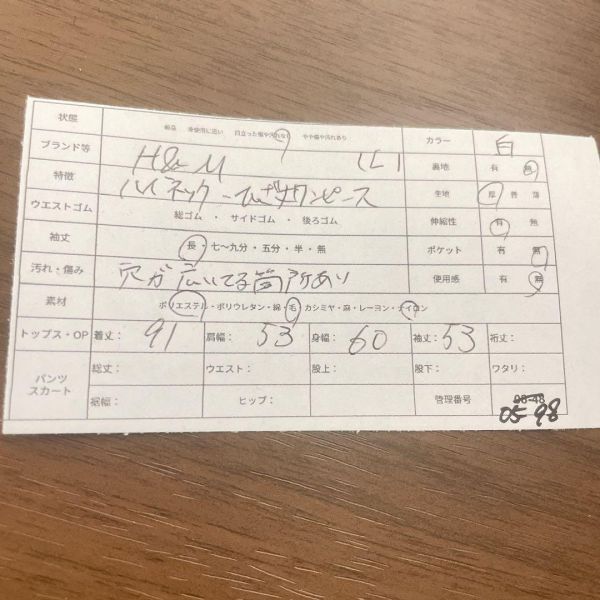 状態 新品 未使用に近い 目立った傷や汚れなし やや傷や汚れあり カラー 白
ブランド等 H&M (L) 裏地 有 無
特徴 ハイネック ひざ丈ワンピース 生地 厚 普 薄
ウエストゴム 総ゴム ・ サイドゴム ・ 後ろゴム 伸縮性 有 無
袖丈 長・七〜九分・五分・半・無 ポケット 有 無
汚れ・傷み 穴が広いてる箇所あり 使用感 有 無
素材 ポリエステル・ポリウレタン・綿・毛・カシミヤ・麻・レーヨン・ナイロン
トップス・OP 着丈: 91 肩幅: 53 身幅: 60 袖丈: 53 裄丈:
パンツ スカート 総丈: ウエスト: 股上: 股下: ワタリ:
裾幅: ヒップ: 管理番号 08-48
05 98